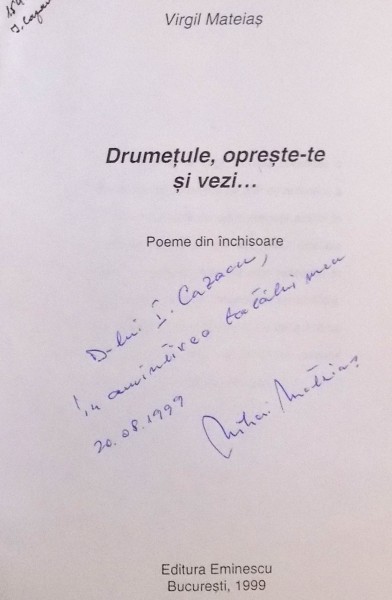 Virgil Mateiaș
Drumețule, oprește-te
și vezi...
Poeme din închisoare
D-lui I. Cazacu,
În amintirea tatălui meu
20.08.1999
Mihai Mateiaș
Editura Eminescu
București, 1999